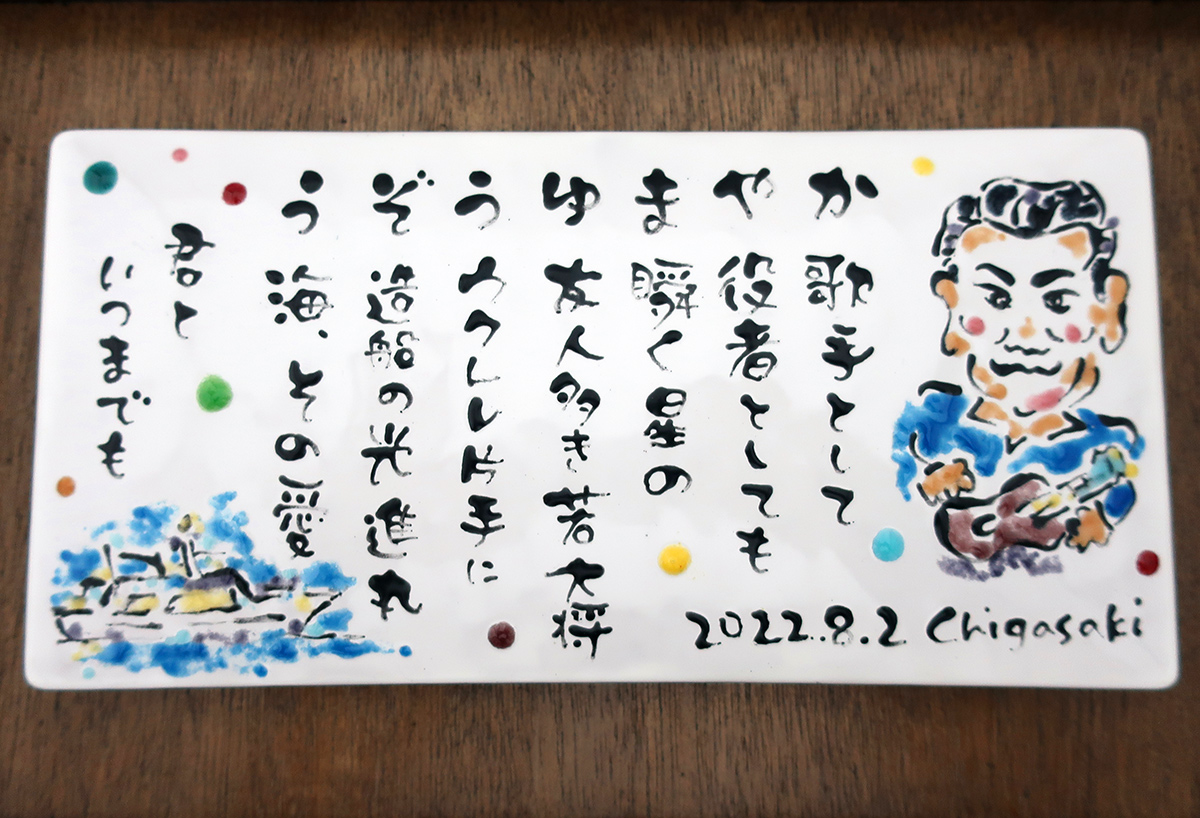 か 歌手として
や 役者としても
ま 瞬く星の
ゆ 友人多き若大将
う ウクレレ片手に
ぞ 造船の光進れ
う 海、その愛
君と
いつまでも
2022.8.2 Chigasaki